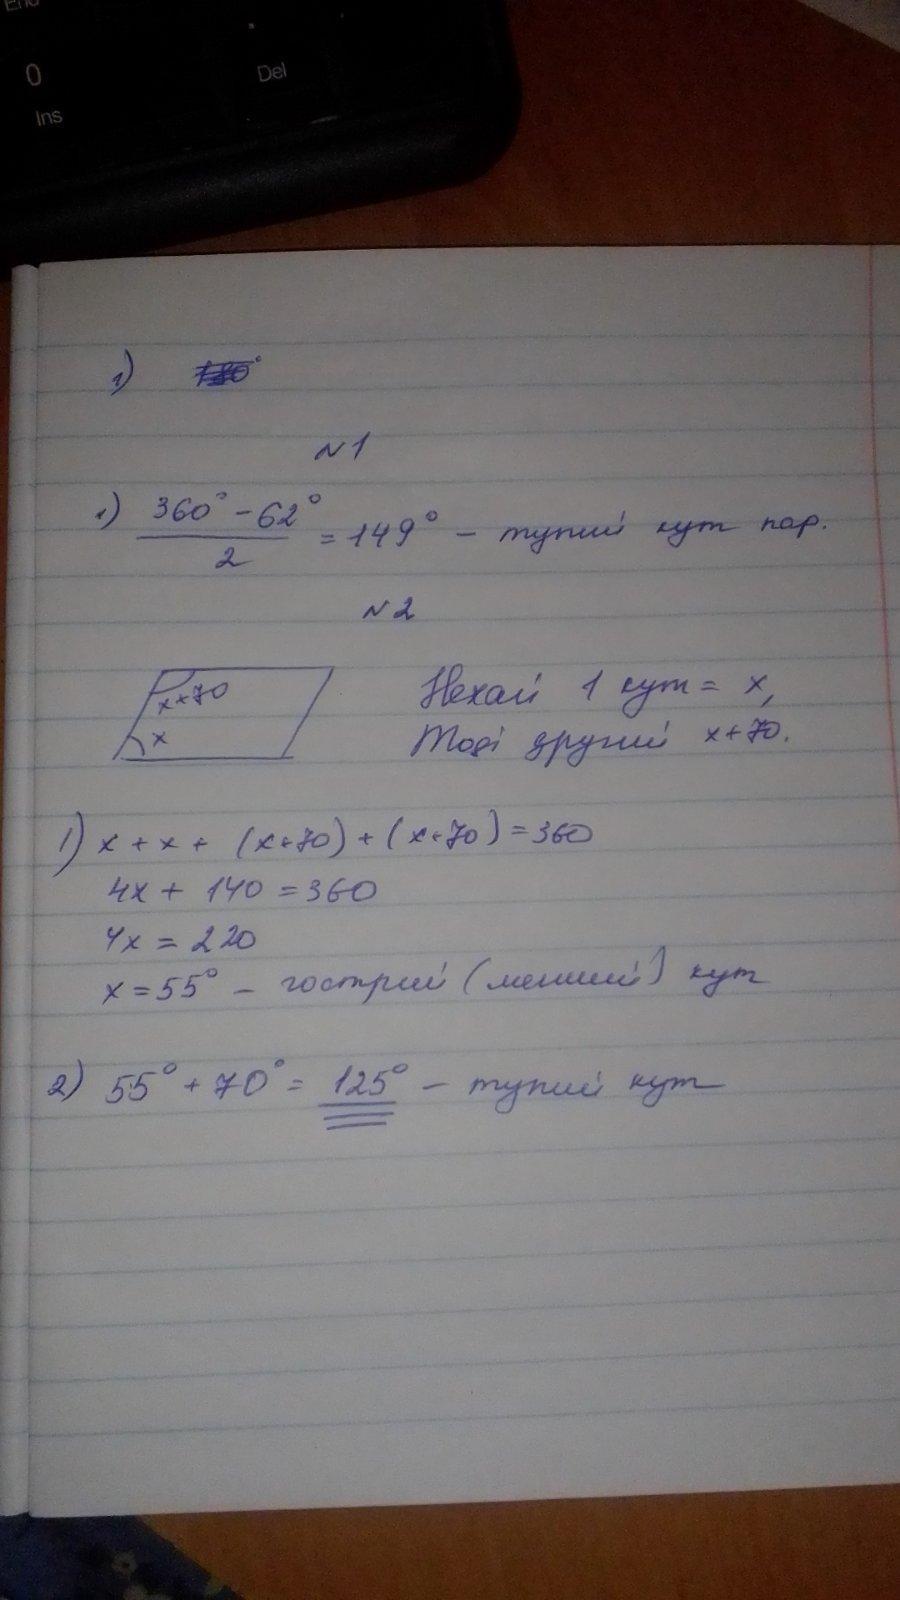 End
0
Ins
.
Del
1)
N1
1) 360° - 62° / 2 = 149° – тупий кут пар.
N2
x+70
x
Нехай 1 кут = x,
Тоді другий x+70.
1) x + x + (x+70) + (x+70) = 360
4x + 140 = 360
4x = 220
x = 55° – гострий (менший) кут
2) 55° + 70° = 125° – тупий кут